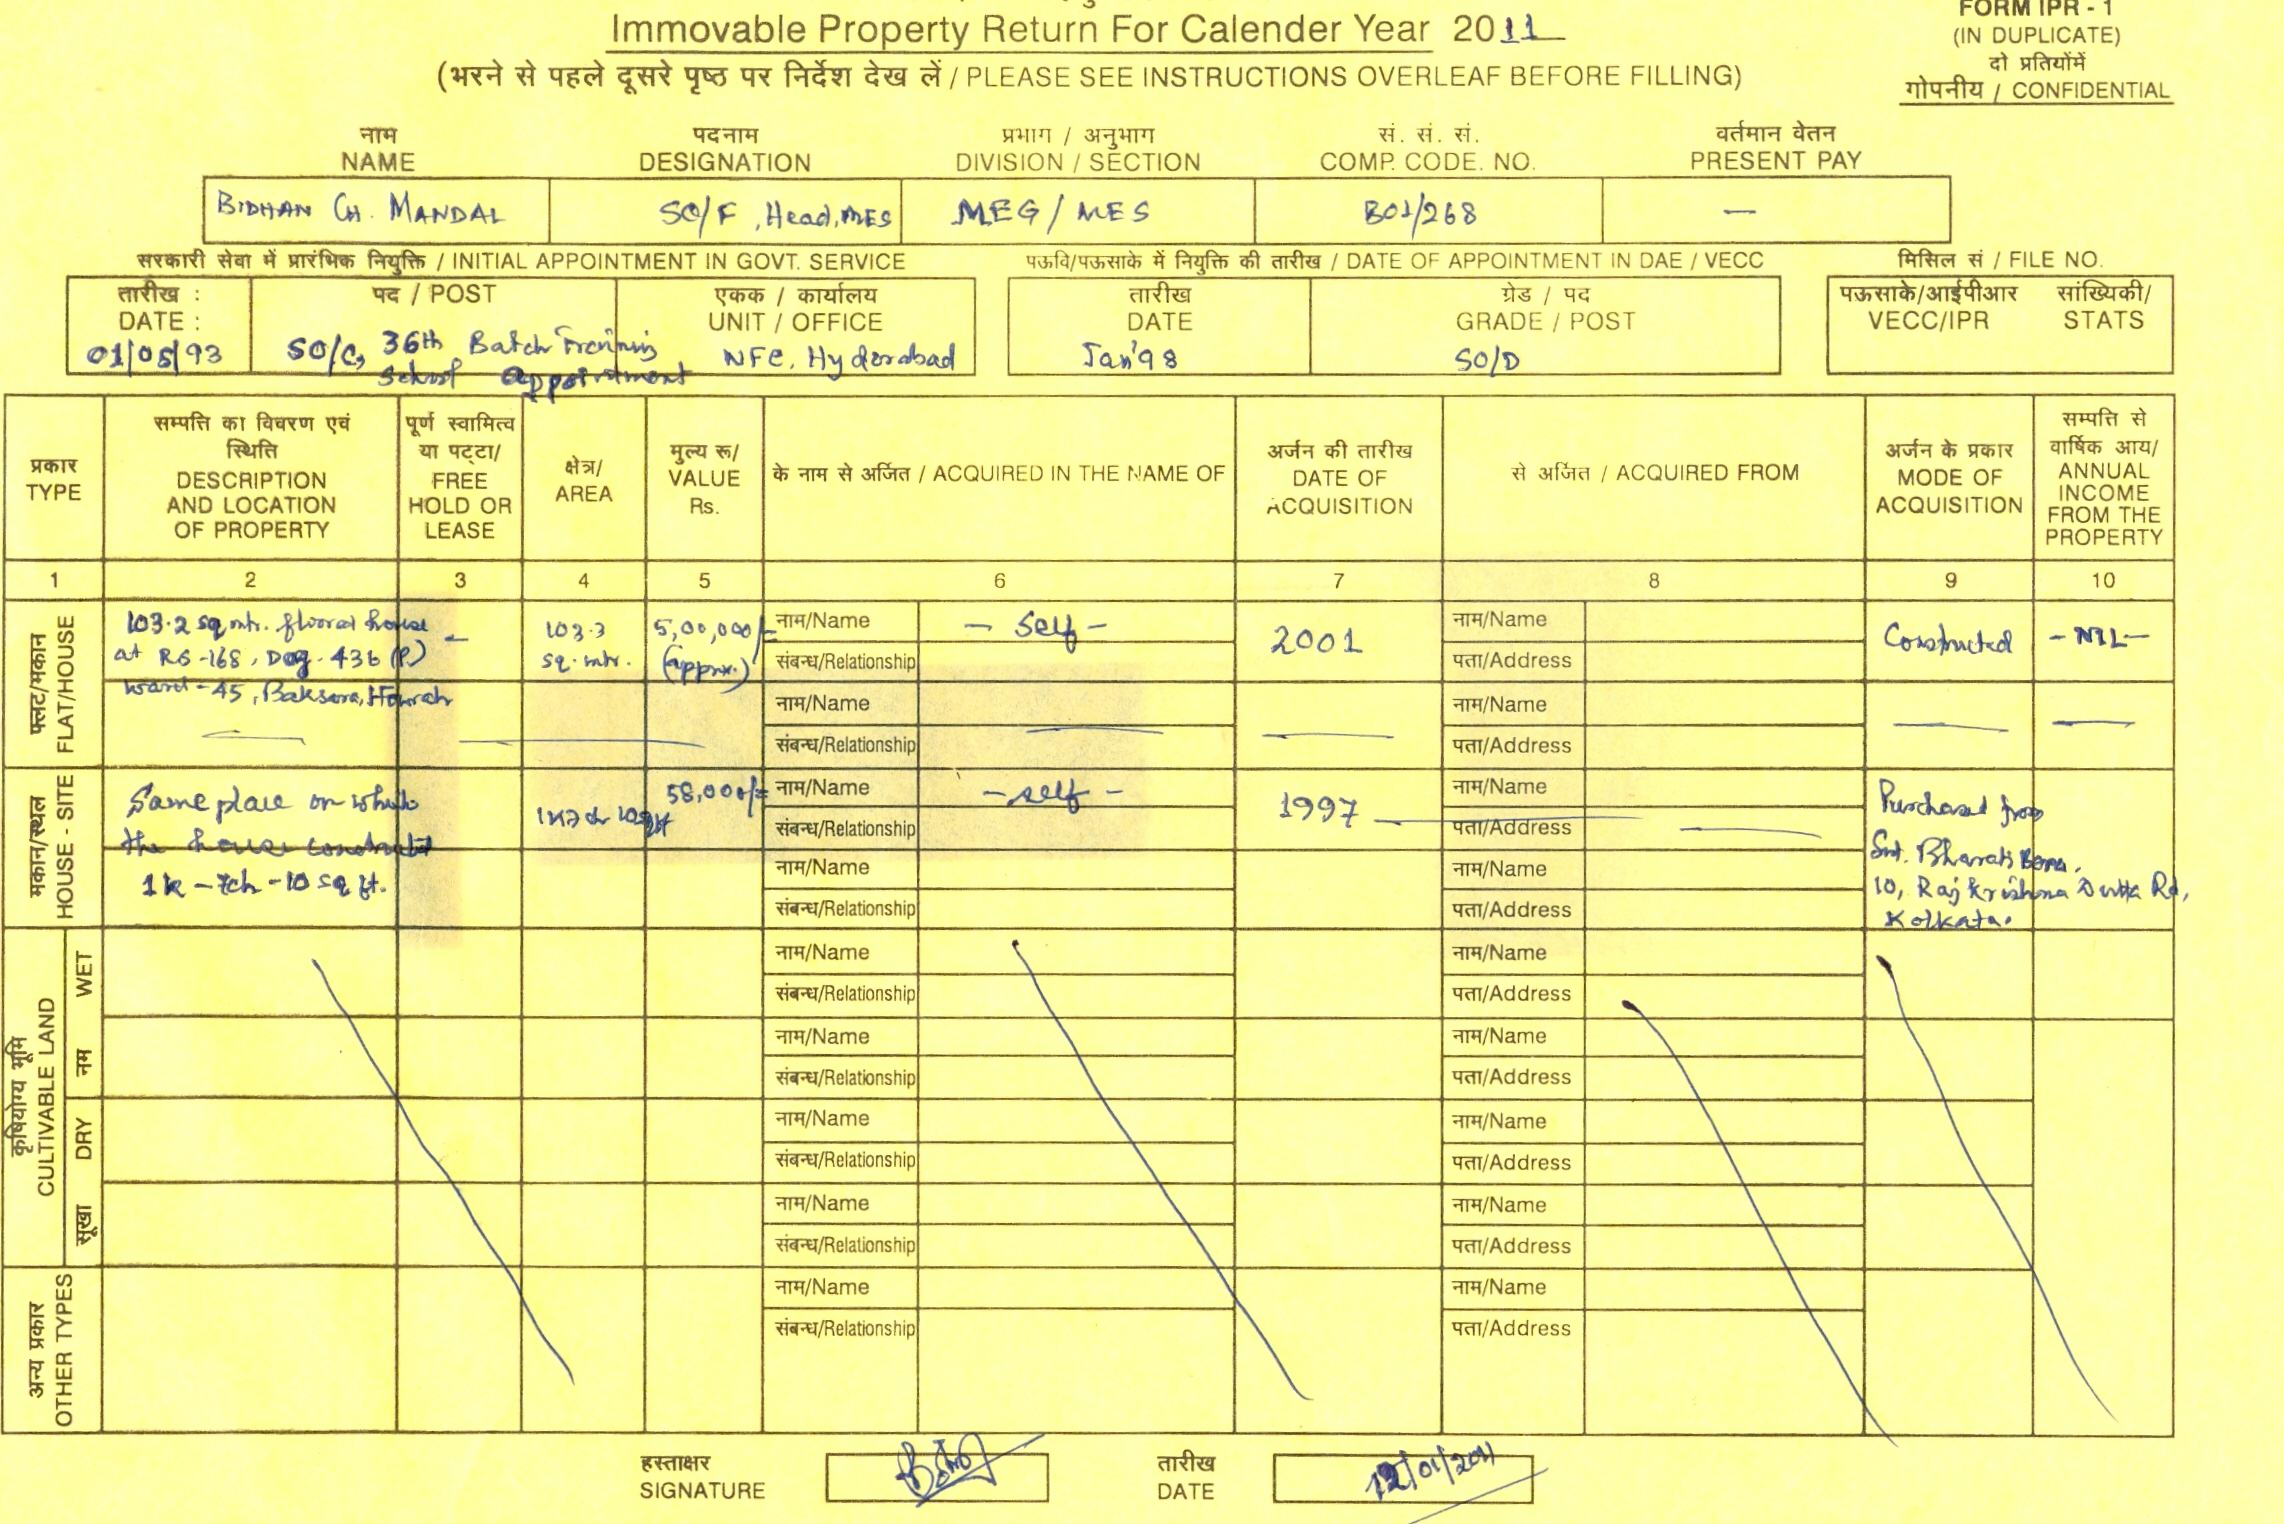 Immovable Property Return For Calender Year 2011
FORM IPR - 1
(IN DUPLICATE)
दो प्रतियोंमें
गोपनीय / CONFIDENTIAL
(भरने से पहले दूसरे पृष्ठ पर निर्देश देख लें / PLEASE SEE INSTRUCTIONS OVERLEAF BEFORE FILLING)
नाम पदनाम प्रभाग / अनुभाग सं. सं. सं. वर्तमान वेतन
NAME DESIGNATION DIVISION / SECTION COMP. CODE. NO. PRESENT PAY
BIDHAN CH. MANDAL SO/F, Head, MES MEG / MES B01/268 —
सरकारी सेवा में प्रारंभिक नियुक्ति / INITIAL APPOINTMENT IN GOVT. SERVICE पऊवि/पऊसाके में नियुक्ति की तारीख / DATE OF APPOINTMENT IN DAE / VECC मिसिल सं / FILE NO.
तारीख : पद / POST एकक / कार्यालय तारीख ग्रेड / पद पऊसाके/आईपीआर सांख्यिकी/
DATE : UNIT / OFFICE DATE GRADE / POST VECC/IPR STATS
01/05/93 SO/C, 36th Batch Training NFC, Hyderabad Jan'98 SO/D
School appointment
प्रकार
TYPE
सम्पत्ति का विवरण एवं
स्थिति
DESCRIPTION
AND LOCATION
OF PROPERTY
पूर्ण स्वामित्व
या पट्टा/
FREE
HOLD OR
LEASE
क्षेत्र/
AREA
मुल्य रू/
VALUE
Rs.
के नाम से अर्जित / ACQUIRED IN THE NAME OF
अर्जन की तारीख
DATE OF
ACQUISITION
से अर्जित / ACQUIRED FROM
अर्जन के प्रकार
MODE OF
ACQUISITION
सम्पत्ति से
वार्षिक आय/
ANNUAL
INCOME
FROM THE
PROPERTY
1 2 3 4 5 6 7 8 9 10
फ्लैट/मकान
FLAT/HOUSE
103.2 sq mtr. floored house
at RS-168, Dag. 436 (P)
ward-45, Baksara, Howrah
—
103.3
sq. mtr.
5,00,000/-
(apprx.)
नाम/Name - Self -
संबन्ध/Relationship
2001
नाम/Name
पता/Address
Constructed
-NIL-
नाम/Name
संबन्ध/Relationship
नाम/Name
पता/Address
मकान/स्थल
HOUSE - SITE
Same place on which
the house constructed
1k - 7ch - 10 sq ft.
1k 7ch 10sqft
58,000/=
नाम/Name - self -
संबन्ध/Relationship
1997
नाम/Name
पता/Address
Purchased from
Smt. Bharati Bera,
10, Raj Krishna Dutta Rd,
Kolkata.
नाम/Name
संबन्ध/Relationship
नाम/Name
पता/Address
कृषियोग्य भूमि
CULTIVABLE LAND
नम WET
नाम/Name नाम/Name
संबन्ध/Relationship पता/Address
नाम/Name नाम/Name
संबन्ध/Relationship पता/Address
सूखा DRY
नाम/Name नाम/Name
संबन्ध/Relationship पता/Address
नाम/Name नाम/Name
संबन्ध/Relationship पता/Address
अन्य प्रकार
OTHER TYPES
नाम/Name नाम/Name
संबन्ध/Relationship पता/Address
हस्ताक्षर तारीख
SIGNATURE DATE 12/01/2011